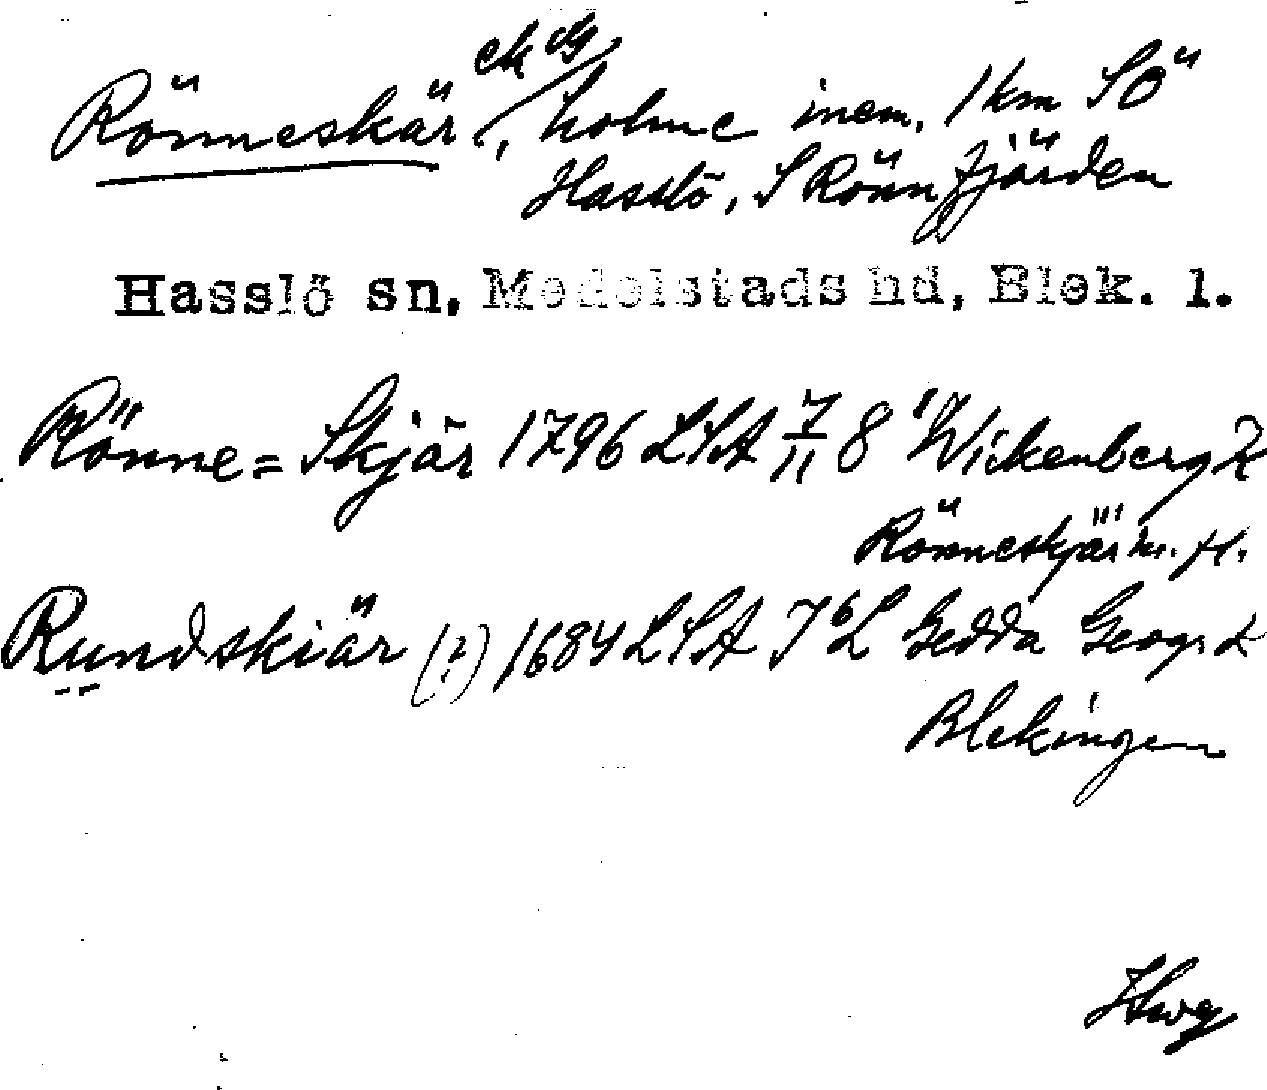 ek G
Rönneskär, holme inem, 1 km SÖ
Hasslö, S Rönnfjärden
Hasslö sn, Medelstads hd, Blek. l.
Rönne=Skjär 1796 LSA 7/11 8 Wickenberg
Rönneskjär m. fl.
Rundskiär (?) 1684 LSA J 6 L Gedda Geogr.
Blekingen